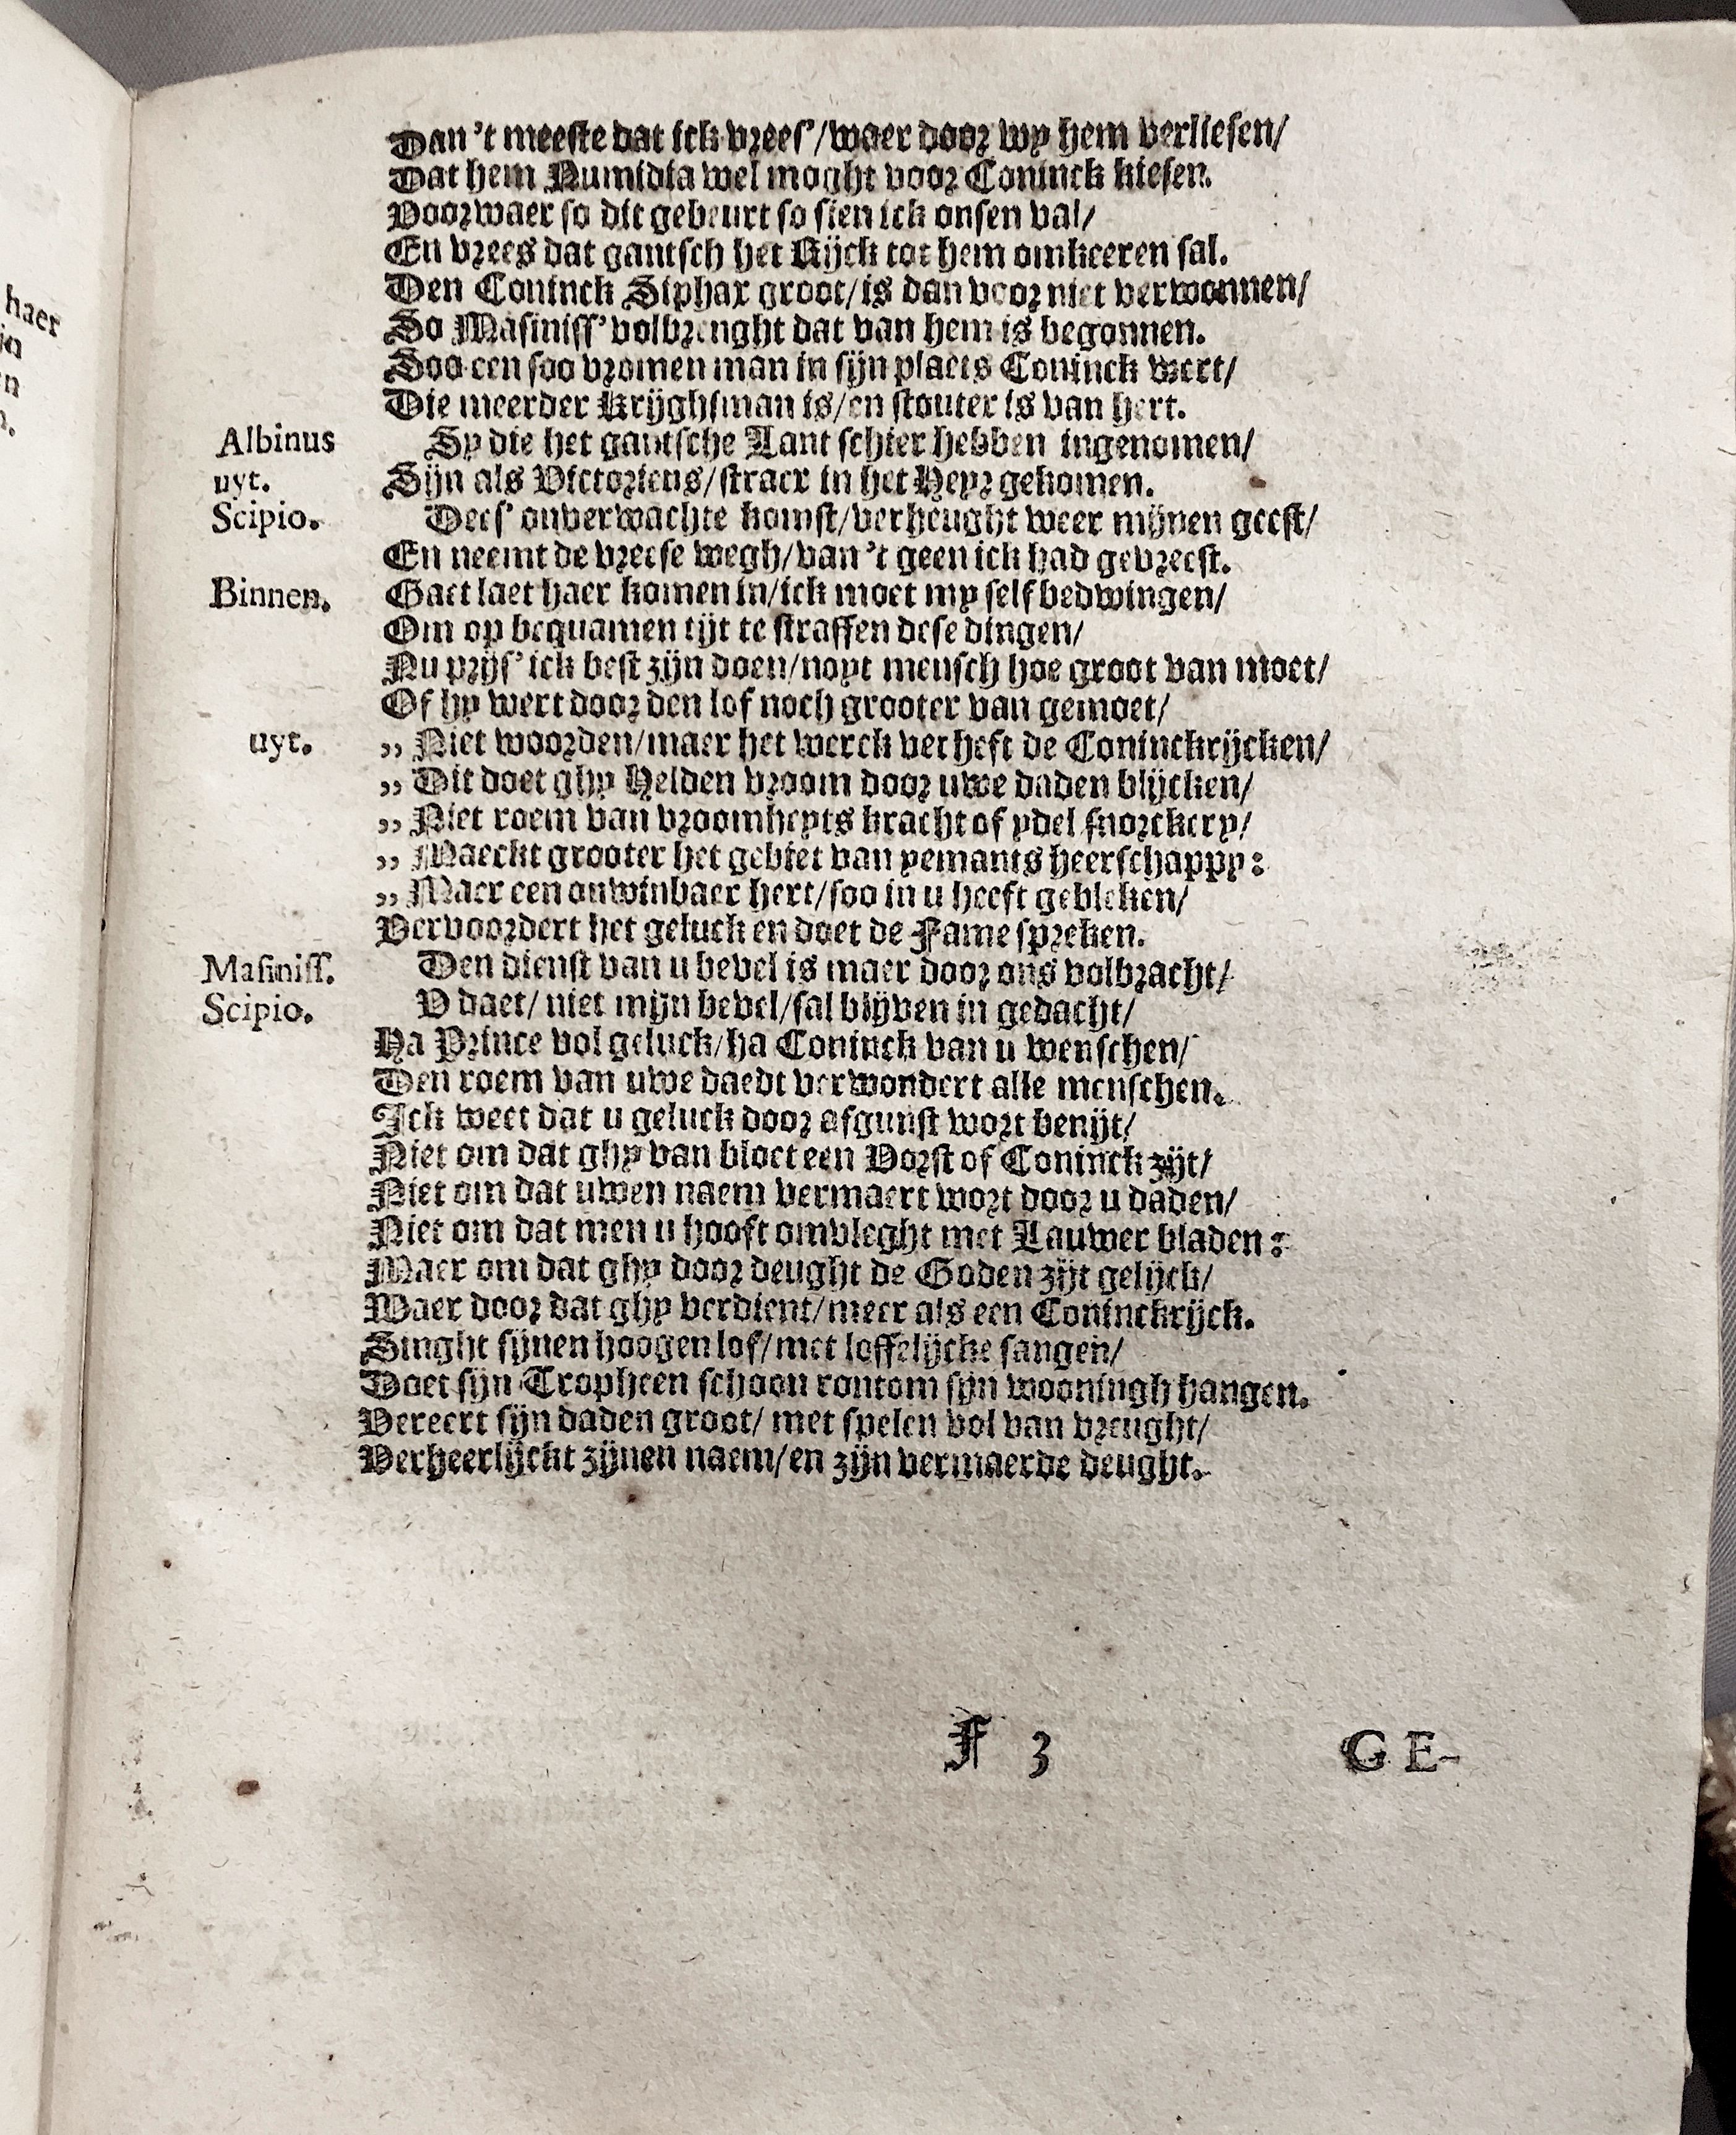 haer
Dan 't meeste dat ick vrees'/waer door wy hem verliesen/
Dat hem Numidia wel moght voor Coninck kiesen.
Voorwaer so dit gebeurt so sien ick onsen val/
En vrees dat gantsch het Rijck tot hem omkeeren sal.
Den Coninck Siphax groot/is dan voor niet verwonnen/
So Masiniss' volbrenght dat van hem is begonnen.
Soo een soo vromen man in sijn plaets Coninck wert/
Die meerder Krijghsman is/en stouter is van hert.
Albinus Sy die het gantsche Lant schier hebben ingenomen/
uyt. Sijn als Victorieus/stracx in het Heyr gekomen.
Scipio. Dees' onverwachte komst/verheught weer mijnen geest/
En neemt de vreese wegh/van 't geen ick had gevreest.
Binnen. Gaet laet haer komen in/ick moet my self bedwingen/
Om op bequamen tijt te straffen dese dingen/
Nu prijs' ick best zijn doen/noyt mensch hoe groot van moet/
Of hy wert door den lof noch grooter van gemoet/
uyt. ,, Niet woorden/maer het werck verheft de Coninckrijcken/
,, Dit doet ghy Helden vroom door uwe daden blijcken/
,, Niet roem van vroomheyts kracht of ydel snorckery/
,, Maeckt grooter het gebiet van yemants heerschappy:
,, Maer een onwinbaer hert/soo in u heeft gebleken/
Vervoordert het geluck en doet de Fame spreken.
Masiniss. Den dienst van u bevel is maer door ons volbracht/
Scipio. V daet/ niet mijn bevel/sal blijven in gedacht/
Ha Prince vol geluck/ha Coninck van u wenschen/
Den roem van uwe daedt verwondert alle menschen.
Ick weet dat u geluck door afgunst wort benijt/
Niet om dat ghy van bloet een Vorst of Coninck zijt/
Niet om dat uwen naem vermaert wort door u daden/
Niet om dat men u hooft omvleght met Lauwer bladen:
Maer om dat ghy door deught de Goden zijt gelijck/
Waer door dat ghy verdient/meer als een Coninckrijck.
Singht sijnen hoogen lof/met loffelijcke sangen/
Doet sijn Tropheen schoon rontom sijn wooningh hangen.
Vereert sijn daden groot/ met spelen vol van vreught/
Verheerlijckt zijnen naem/en zijn vermaerde deught.
F 3 GE-